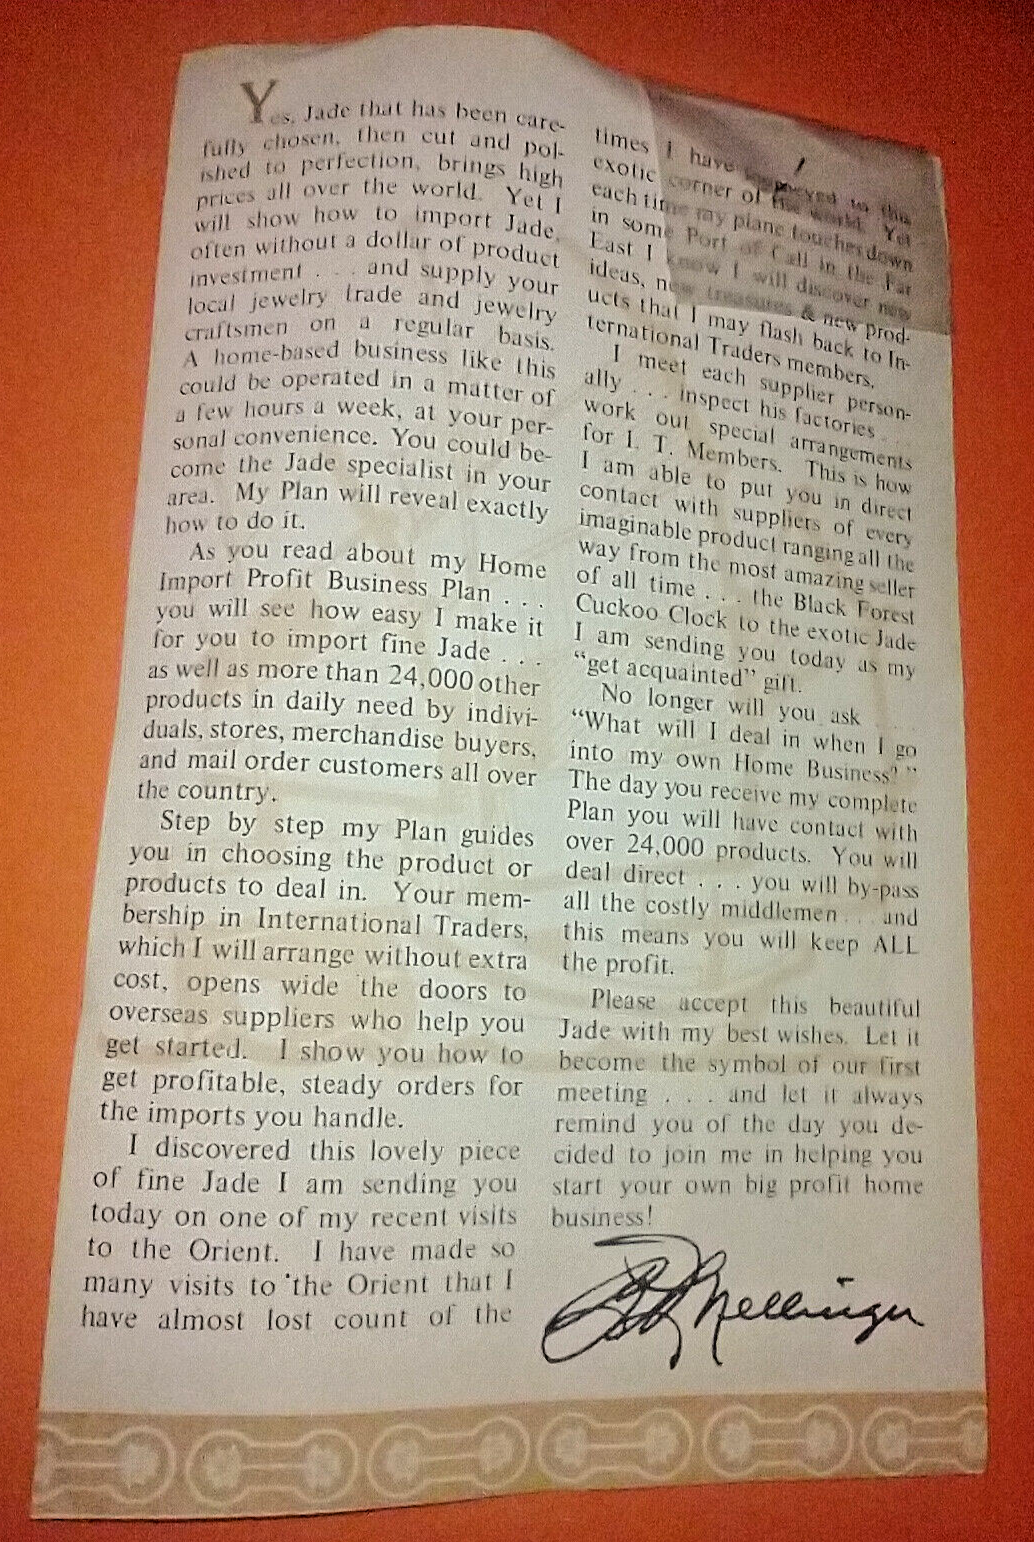 Yes, Jade that has been care-
fully chosen, then cut and pol-
ished to perfection, brings high
prices all over the world. Yet I
will show how to import Jade,
often without a dollar of product
investment . . . and supply your
local jewelry trade and jewelry
craftsmen on a regular basis.
A home-based business like this
could be operated in a matter of
a few hours a week, at your per-
sonal convenience. You could be-
come the Jade specialist in your
area. My Plan will reveal exactly
how to do it.
As you read about my Home
Import Profit Business Plan . . .
you will see how easy I make it
for you to import fine Jade . . .
as well as more than 24,000 other
products in daily need by indivi-
duals, stores, merchandise buyers,
and mail order customers all over
the country.
Step by step my Plan guides
you in choosing the product or
products to deal in. Your mem-
bership in International Traders,
which I will arrange without extra
cost, opens wide the doors to
overseas suppliers who help you
get started. I show you how to
get profitable, steady orders for
the imports you handle.
I discovered this lovely piece
of fine Jade I am sending you
today on one of my recent visits
to the Orient. I have made so
many visits to the Orient that I
have almost lost count of the
times I have journeyed to this
exotic corner of the world. Yet
each time my plane touches down
in some Port of Call in the Far
East I know I will discover new
ideas, new treasures & new prod-
ucts that I may flash back to In-
ternational Traders members.
I meet each supplier person-
ally . . . inspect his factories . . .
work out special arrangements
for I. T. Members. This is how
I am able to put you in direct
contact with suppliers of every
imaginable product ranging all the
way from the most amazing seller
of all time . . . the Black Forest
Cuckoo Clock to the exotic Jade
I am sending you today as my
“get acquainted” gift.
No longer will you ask . . .
“What will I deal in when I go
into my own Home Business?”
The day you receive my complete
Plan you will have contact with
over 24,000 products. You will
deal direct . . . you will by-pass
all the costly middlemen . . . and
this means you will keep ALL
the profit.
Please accept this beautiful
Jade with my best wishes. Let it
become the symbol of our first
meeting . . . and let it always
remind you of the day you de-
cided to join me in helping you
start your own big profit home
business!
Mellinger